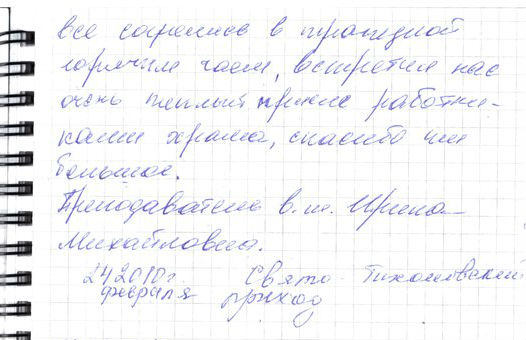 все согрелись в трапезной
горячим чаем, встретил нас
очень теплый прием работни-
ками храма, спасибо им
большое.
Преподаватель в.ш. Ирина
Михайловна.
24 2010г. Свято-Тихоновский
февраля приход